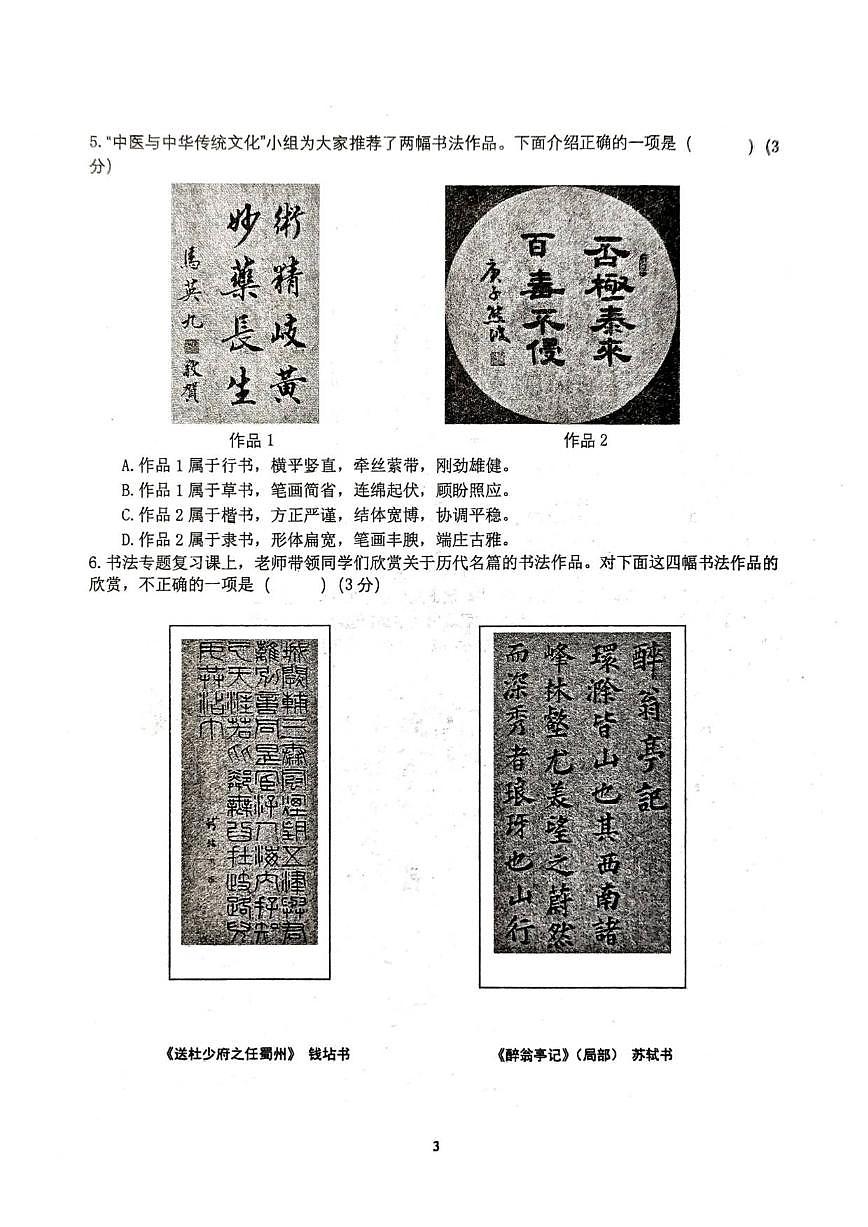 5.“中医与中华传统文化”小组为大家推荐了两幅书法作品。下面介绍正确的一项是（　　）(3
分)
術精岐黃
妙藥長生
馬英九
敬賀
否極泰來
百毒不侵
庚子熊波
作品 1
作品 2
A.作品 1 属于行书，横平竖直，牵丝萦带，刚劲雄健。
B.作品 1 属于草书，笔画简省，连绵起伏，顾盼照应。
C.作品 2 属于楷书，方正严谨，结体宽博，协调平稳。
D.作品 2 属于隶书，形体扁宽，笔画丰腴，端庄古雅。
6.书法专题复习课上，老师带领同学们欣赏关于历代名篇的书法作品。对下面这四幅书法作品的
欣赏，不正确的一项是（　　）(3 分)
城闕輔三秦風煙望五津與君
離別意同是宦游人海内存知
己天涯若比鄰無爲在岐路兒
女共沾巾
醉翁亭記
環滁皆山也其西南諸
峰林壑尤美望之蔚然
而深秀者琅玡也山行
《送杜少府之任蜀州》 钱坫书
《醉翁亭记》（局部） 苏轼书
3